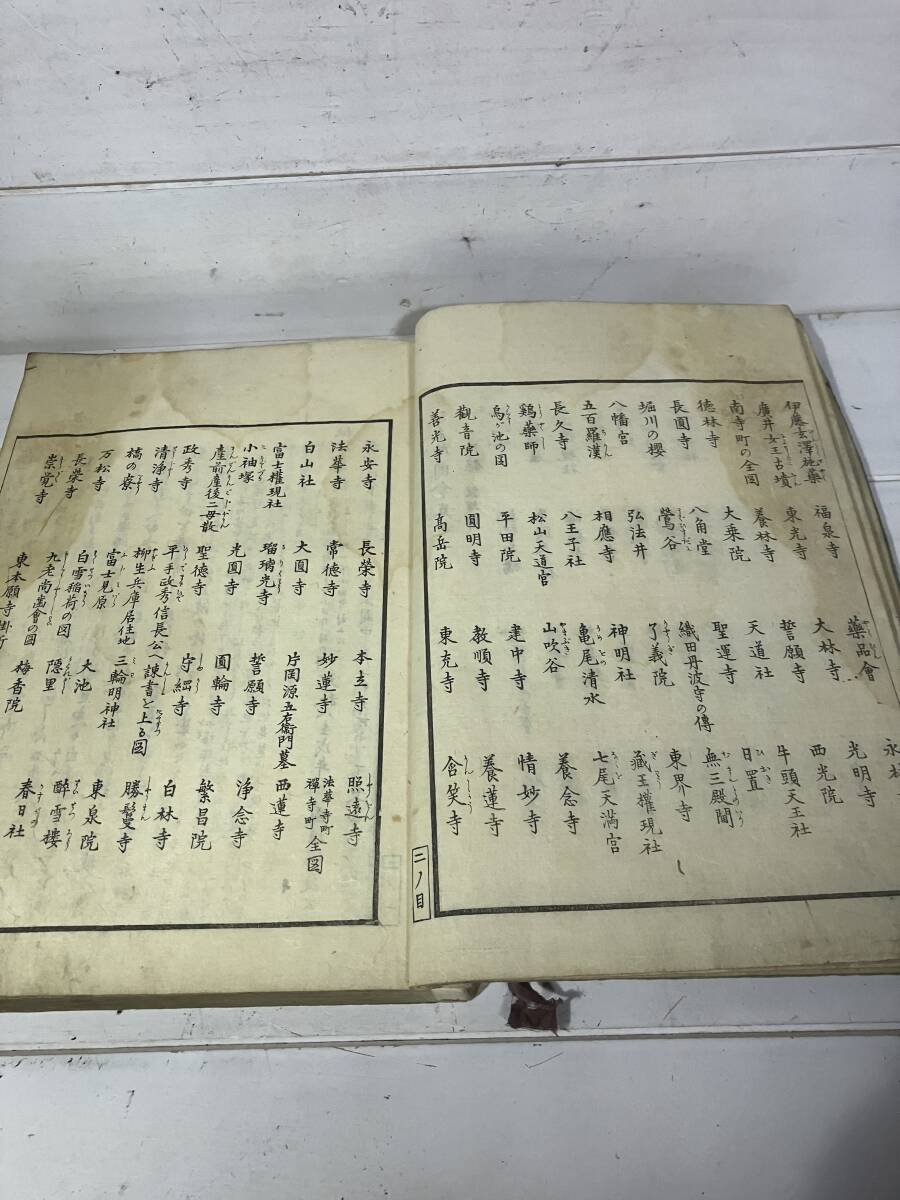 伊藤玄澤施藥 福泉寺 藥品會
廣井女王古墳 東光寺 大林寺 光明寺
南寺町の全図 養林寺 誓願寺 西光院
徳林寺 大乗院 天道社 牛頭天王社
長圓寺 八角堂 聖運寺 日置
堀川の櫻 鶯谷 織田丹波守の傳 無三殿間
八幡宮 弘法井 了義院 東界寺
五百羅漢 相應寺 神明社 藏王權現社
長久寺 八王子社 亀尾清水 七尾天満宮
鶏藥師 松山天道宮 山吹谷 養念寺
烏ヶ池の図 平田院 建中寺 情妙寺
觀音院 圓明寺 教順寺 養蓮寺
善光寺 高岳院 東充寺 含笑寺
二ノ目
永安寺 長榮寺 本立寺 照遠寺
法華寺 常徳寺 妙蓮寺 法華寺町禪寺町全図
白山社 大圓寺 片岡源五右衛門墓 西蓮寺
富士權現社 瑠璃光寺 誓願寺 浄念寺
小袖塚 光圓寺 圓輪寺 繁昌院
産前産後二母散 聖徳寺 守綱寺 白林寺
政秀寺 平手政秀信長公へ諌書を上る図 勝鬘寺
清浄寺 柳生兵庫居住地 三輪明神社 東泉院
橘の寮 富士見原 大池 酔雪樓
万松寺 白雪稲荷の図 隠里 春日社
長榮寺 九老尚齒會の図 梅香院
崇覚寺 東本願寺掛所